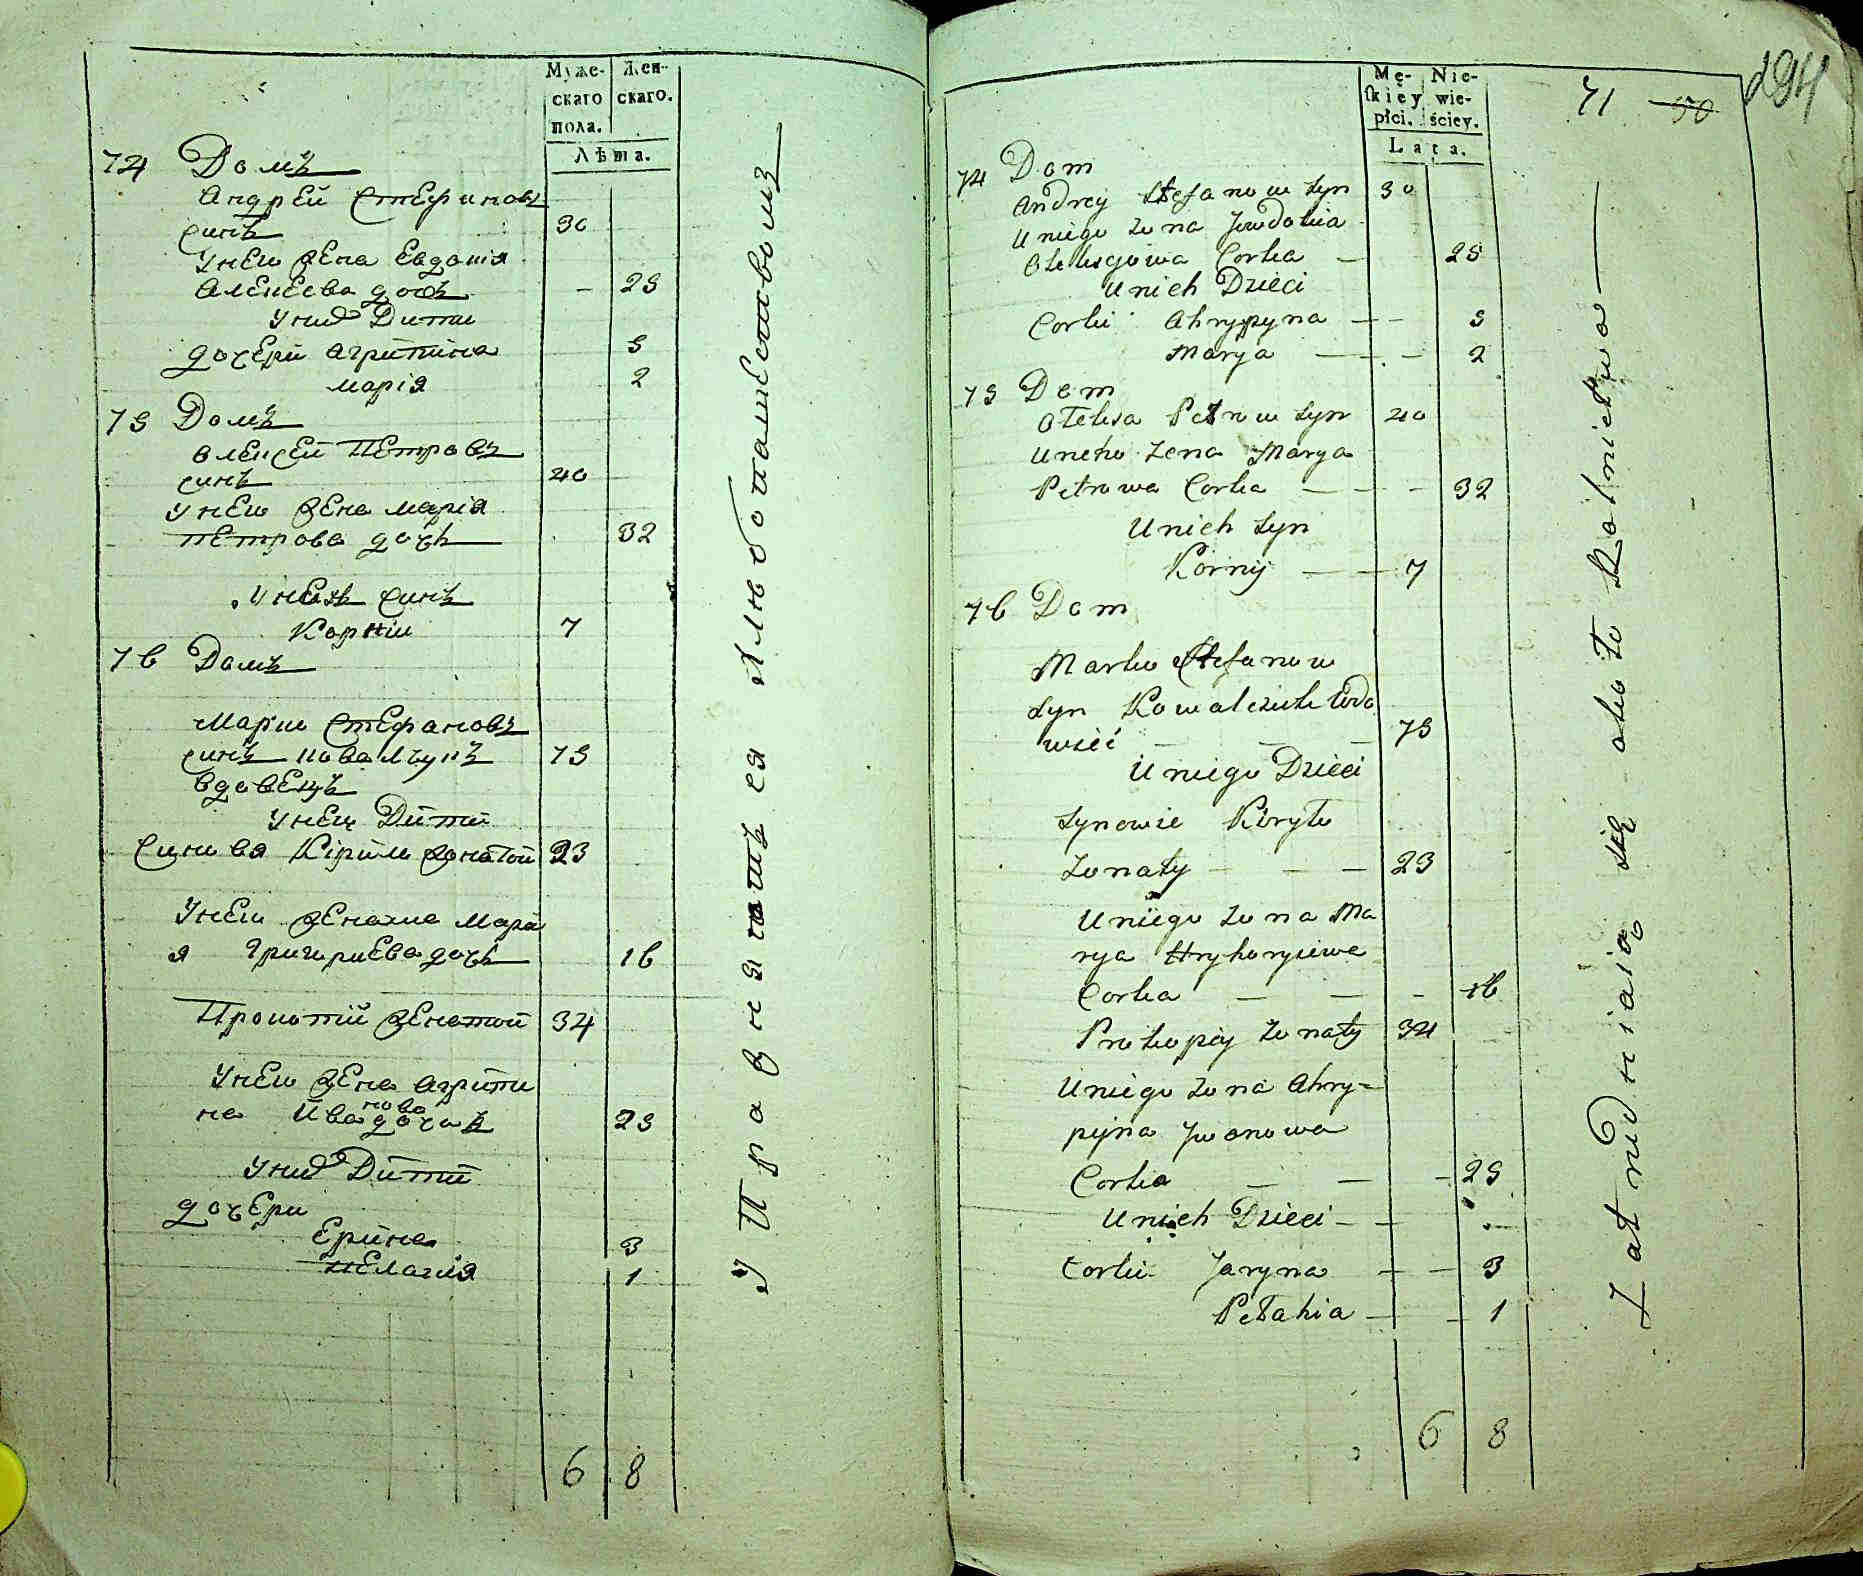 Муже-
скаго
пола.
Жен-
скаго.
Лѣта.
74 Домъ
Андрей Стефановъ
синъ 30
Унего жена Евдокія
Алексѣева дочь - 25
Унихъ Дити
дочери Агрипина 5
Марія 2
75 Домъ
Олексей Петровъ
синъ 40
Унего жена Марія
Петрова дочь 32
Унихъ синъ
Корній 7
76 Домъ
Марко Стефановъ
синъ Ковалчукъ 75
вдовецъ
Унего Дити
Синовя Кирило жонатой 23
Унего жена Мари
я Григориева дочь 16
Прокопій женатой 34
Унего жена Агрипи
на Ивановa дочь 25
Унихъ Дити
дочери
Ерина 3
Пелагия 1
6 8
Упражняютъся Хлюбопашествомъ
Mę-
skiey
płci.
Nie-
wie-
ściey.
Lata.
71 50
294
74 Dom
Andrey Stefanow syn 30
Uniego żona Jewdokia
Oleksijowa Corka — 25
Unich Dzieci
Corki Ahrypyna — — 5
Marya — — 2
75 Dom
Oleksa Petrow syn 40
Uneho żena Marya
Petrowa Corka — — — 32
Unich syn
Korniy — — 7
76 Dom
Marko Stefanow
syn Kowalczuk wdo
wiec — — — 75
Uniego Dzieci
synowie Kiryło
żonaty — — — 23
Uniego żona Ma
rya Hryhoryiewa
Corka — — - 16
Prokopiy żonaty 34
Uniego żona Ahry=
pijna Jwanowa
Corka — — - 25
Unich Dzieci — —
Corki Jaryna — — 3
Pełahia — — 1
6 8
Zatrudniaią się około Rolnictwa